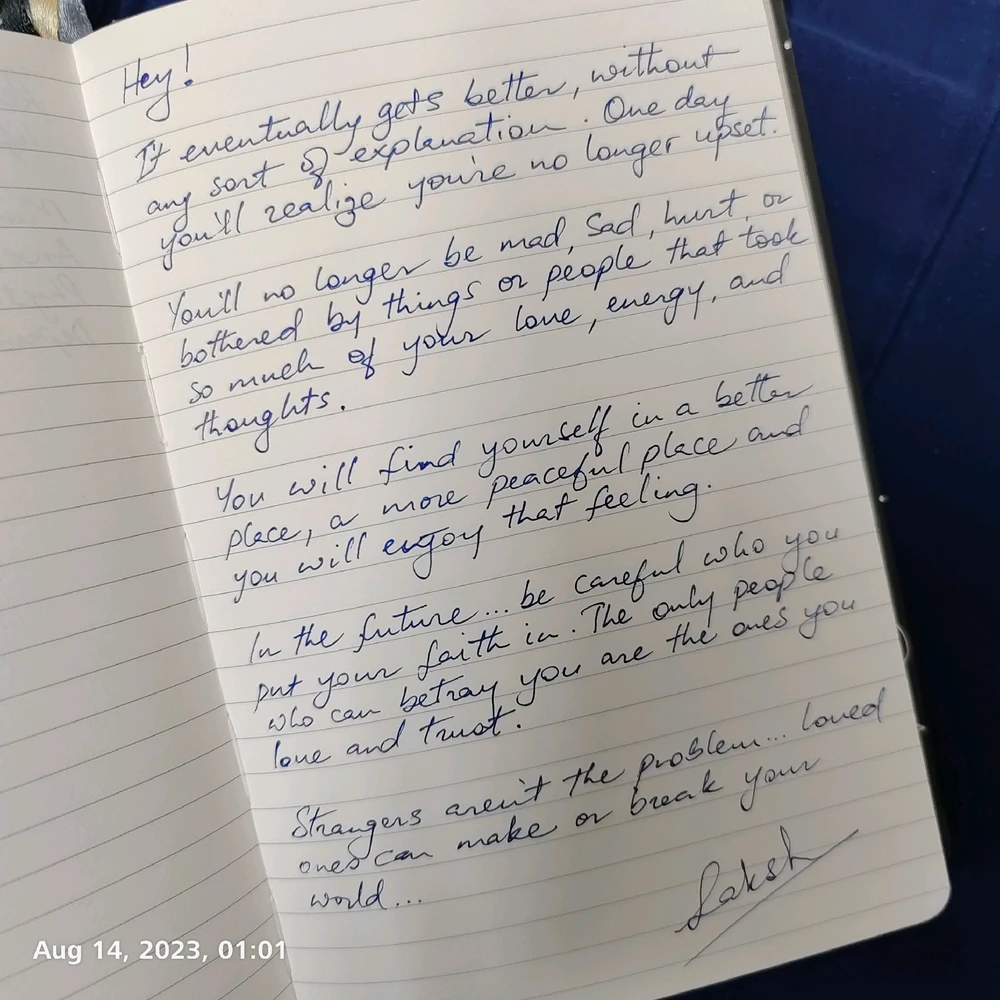 Hey!
It eventually gets better, without
any sort of explanation. One day
you'll realize you're no longer upset.
You'll no longer be mad, sad, hurt, or
bothered by things or people that took
so much of your love, energy, and
thoughts.
You will find yourself in a better
place, a more peaceful place and
you will enjoy that feeling.
In the future... be careful who you
put your faith in. The only people
who can betray you are the ones you
love and trust.
Strangers aren't the problem... loved
ones can make or break your
world...
Laksh
Aug 14, 2023, 01:01